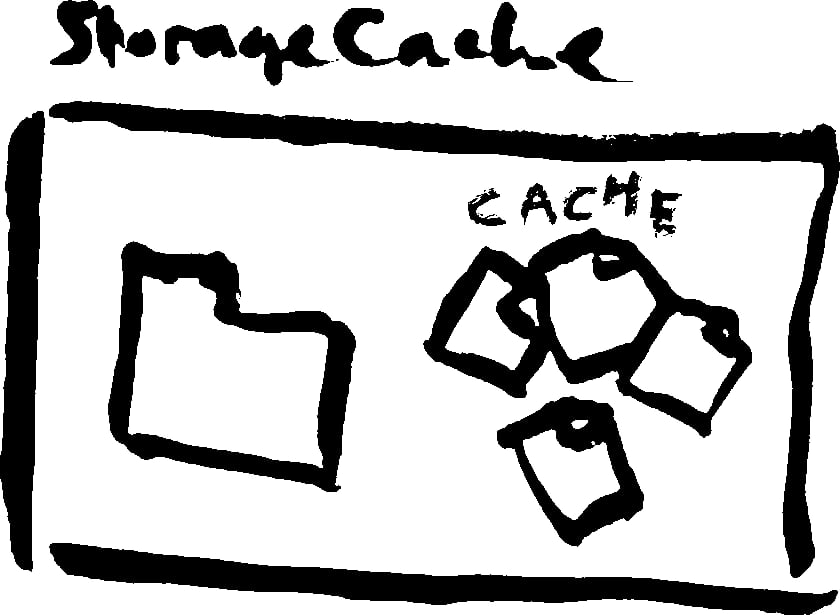 StorageCache
CACHE